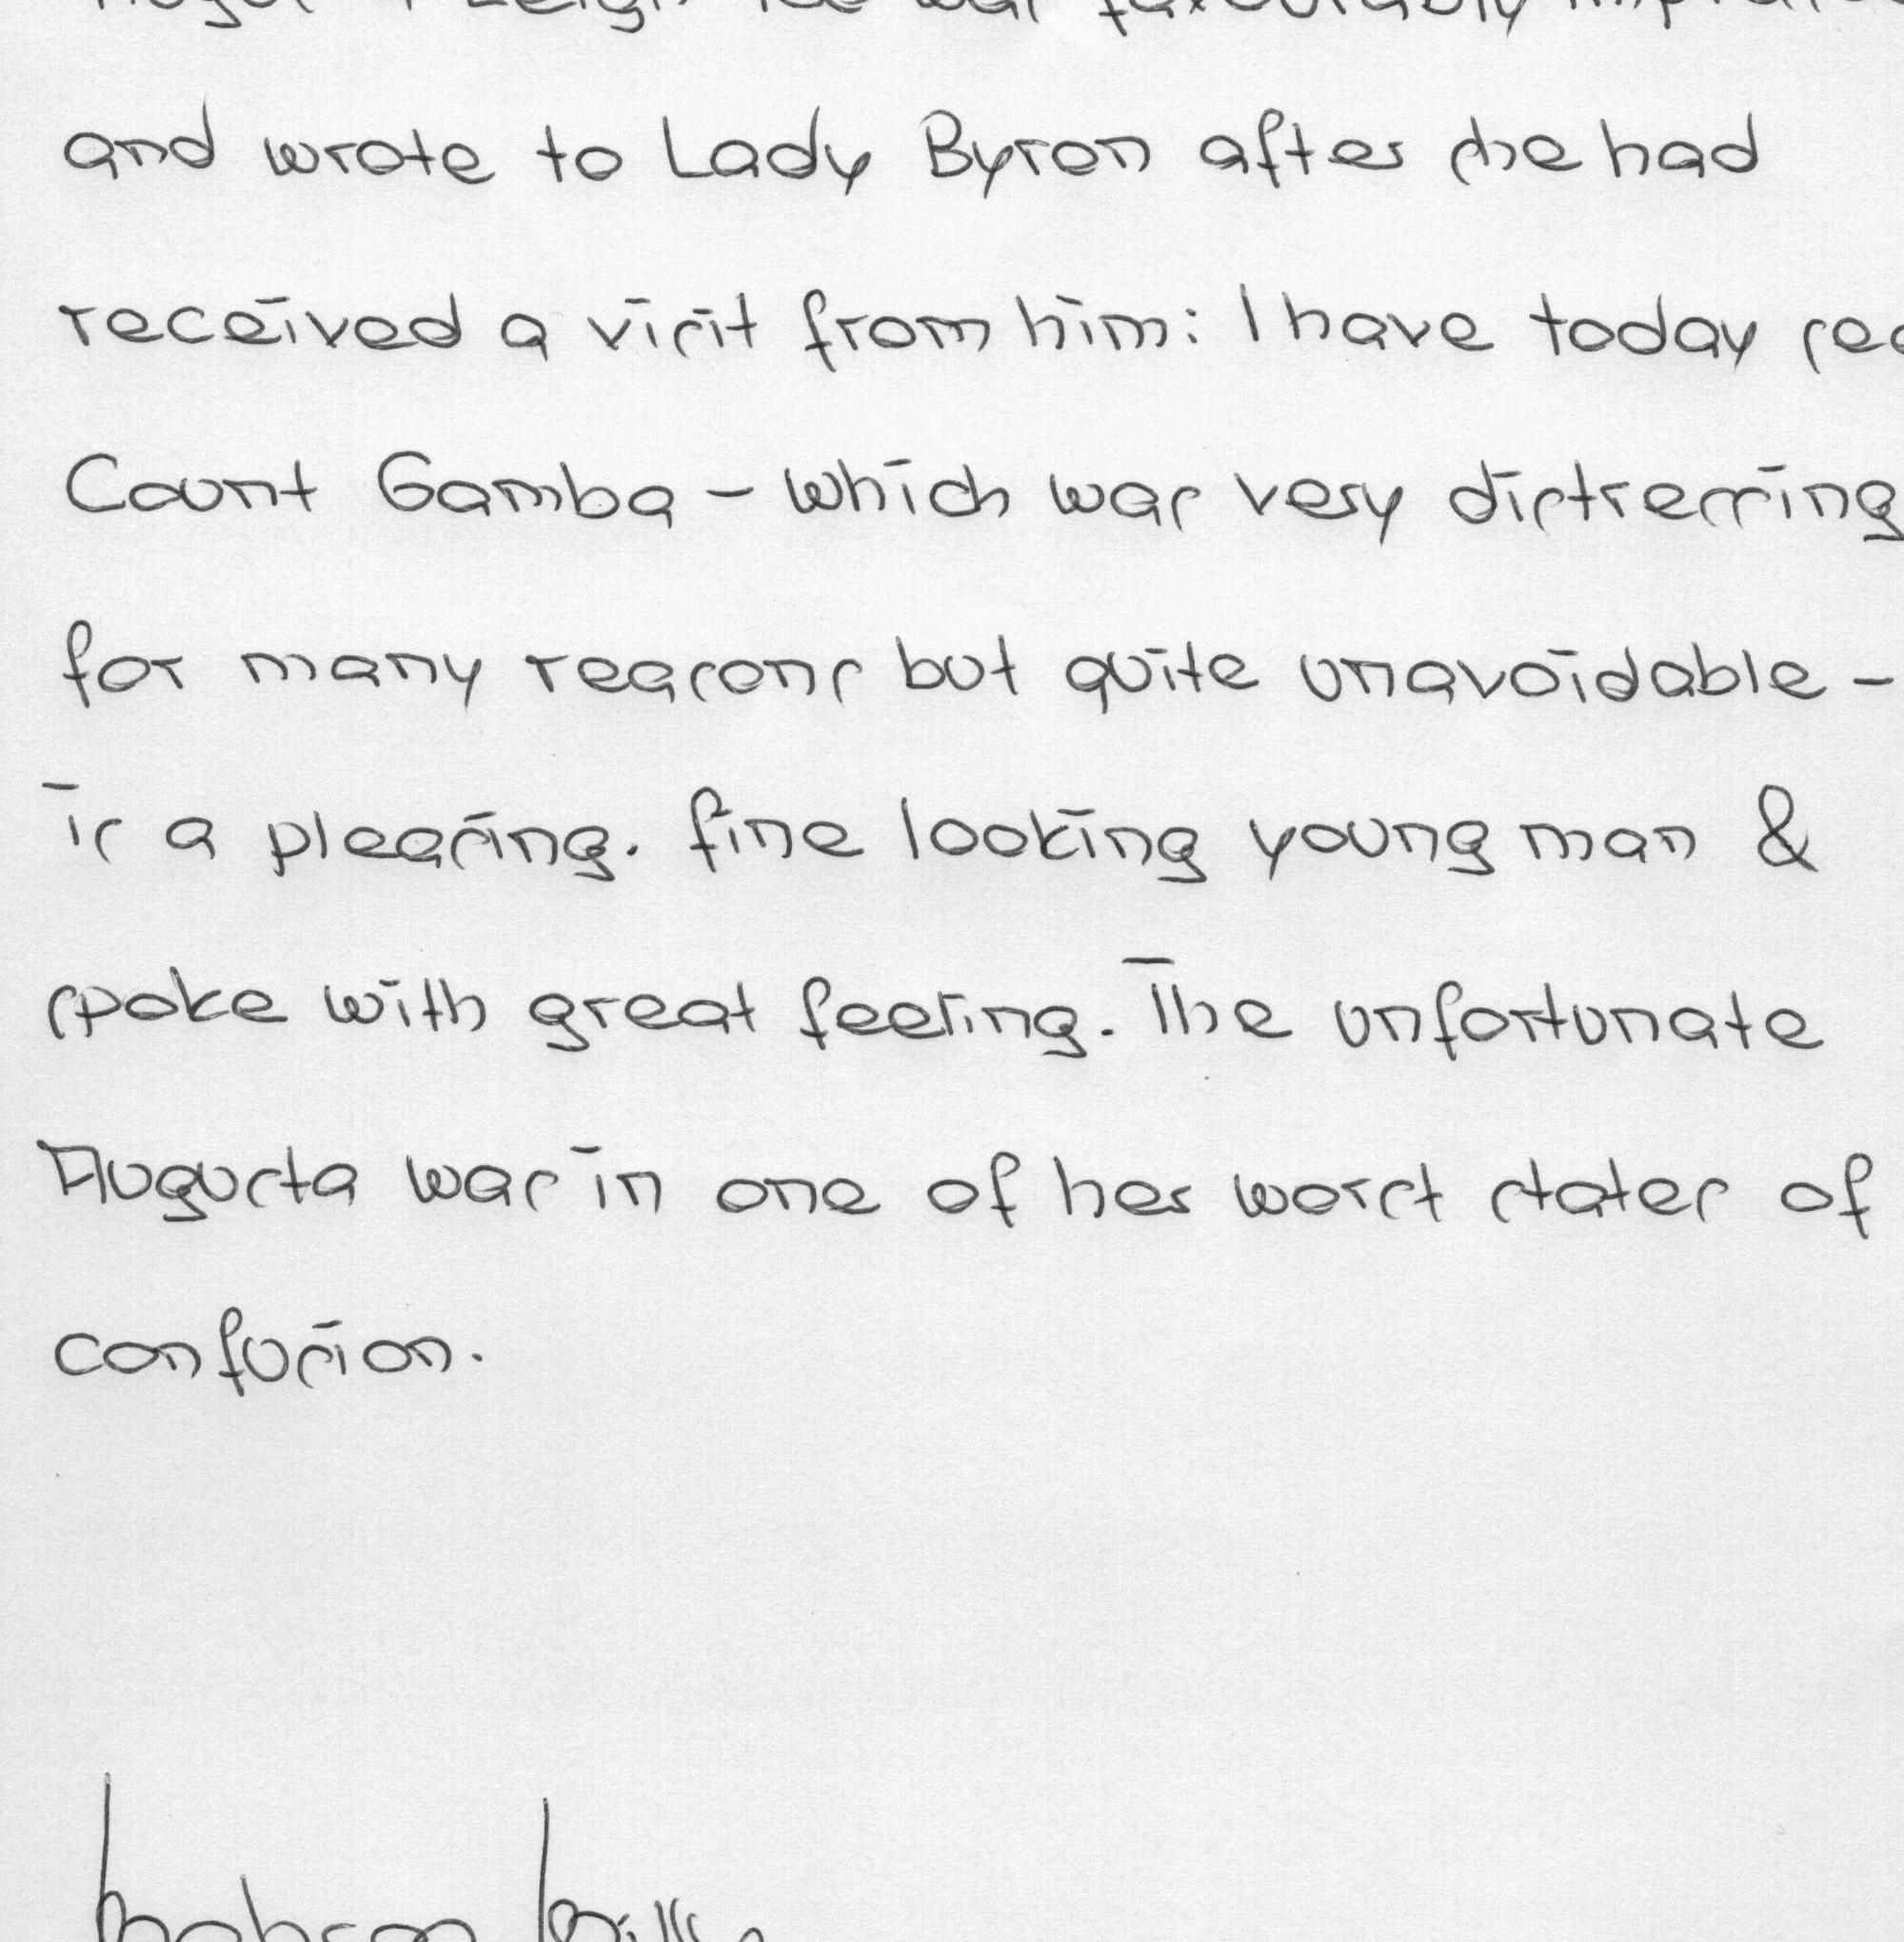 and wrote to Lady Byron after she had
received a visit from him: I have today
Count Gamba - which was very distressing
for many reasons but quite unavoidable -
is a pleasing. fine looking young man &
spoke with great feeling. The unfortunate
Augusta was in one of her worst states of
confusion.